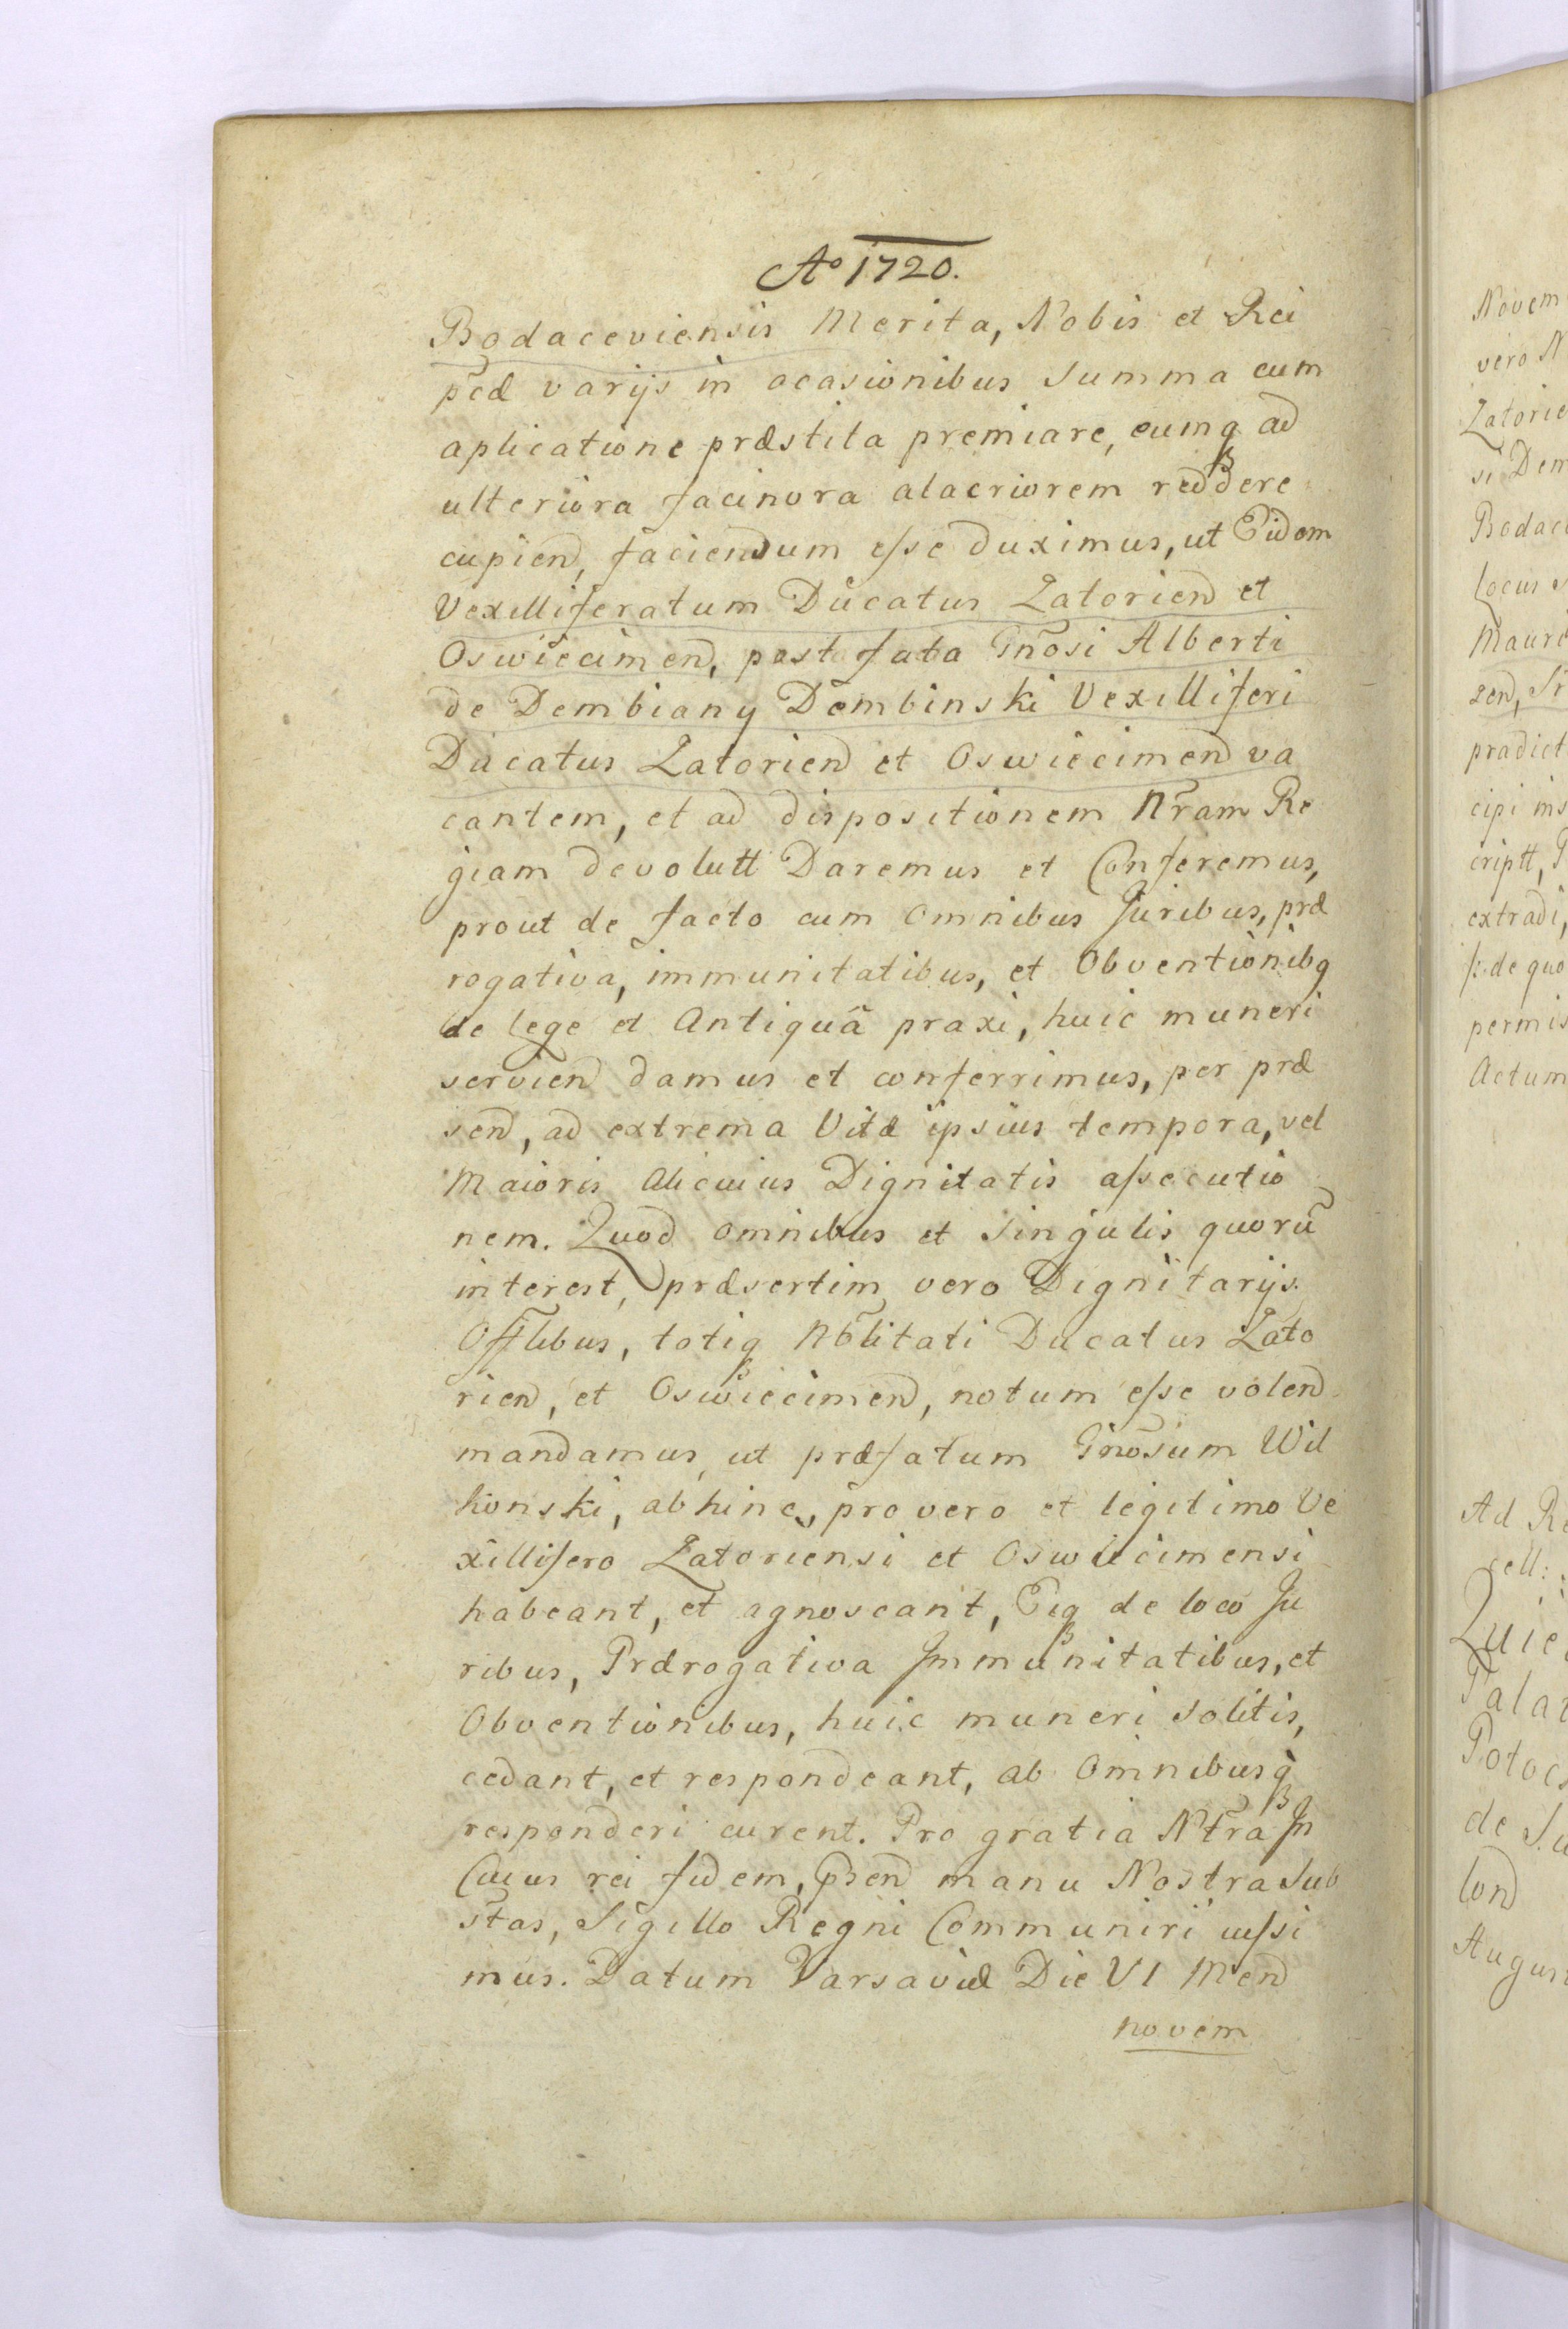 Ao 1720.
Bodaceviensis Merita, Nobis et Rei
pcæ varijs in ocasionibus Summa cum
aplicatione præstita premiare, eumq ad
ulteriora facinora alacriorem reddere
cupien, faciendum esse duximus, ut Eidem
Vexilliferatum Ducatus Zatorien et
Oswiecimen, post fata Gnosi Alberti
de Dembiany Dembinski Vexilliferi
Ducatus Zatorien et Oswiecimen va
cantem, et ad dispositionem Nram Re
giam devolutt Daremus et Conferemus,
prout de facto cum omnibus Juribus, præ
rogativa, immunitatibus, et Obventionibq
de lege et Antiquâ praxi, huic muneri
servien damus et conferrimus, per præ
sen, ad extrema Vitæ ipsius tempora, vel
Maioris alicuius Dignitatis assecutio
nem. Quod omnibus et Singulis quorũ
interest, præsertim vero Dignitarijs
Offlibus, totiq Nõlitati Ducatus Zato
rien, et Oswiecimen, notum esse volen
mandamus, ut præfatum Gnõsum Wil
konski, abhinc, pro vero et legitimo Ve
xillifero Zatoriensi et Oswiecimensi
habeant, et agnoscant, Eiq de loco Ju
ribus, Prærogativa Immunitatibus, et
Obventionibus, huic muneri Solitis,
cedant, et respondeant, ab Omnibusq
responderi curent. Pro gratia Ntra In
Cuius rei fidem, pñsen manu Nostra Sub
stas, Sigillo Regni Communiri iussi
mus. Datum Varsaviæ Die VI Men
novem
Novem
vero N
Zatorie
si Dem
Bodac
locus
Maure
zen,
prædict
cipi ins
criptt,
extradi,
de quo
permis
Actum
Ad Re
cell:
Quie
Palat
Potoc
de
lon
Augus